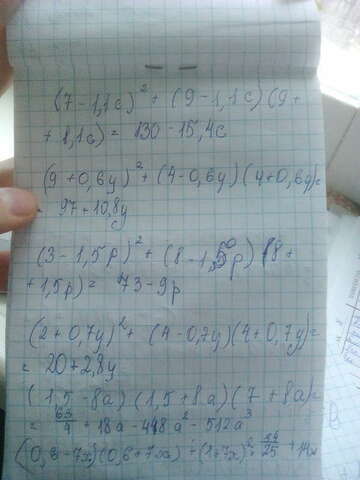 (7-1,1c)² + (9-1,1c)(9+
+1,1c) = 130-15,4c
(9+0,6y)² + (4-0,6y)(4+0,6y)=
= 97+10,8y
(3-1,5p)² + (8-1,5p)(8+
+1,5p) = 73-9p
(2+0,7y)² + (4-0,7y)(4+0,7y)=
= 20+2,8y
(1,5-8a)(1,5+8a)(7+8a)=
= 63/4 + 18a - 448a² - 512a³
(0,6-7x)(0,6+7x) + (1+7x)² = 34/25 + 14x